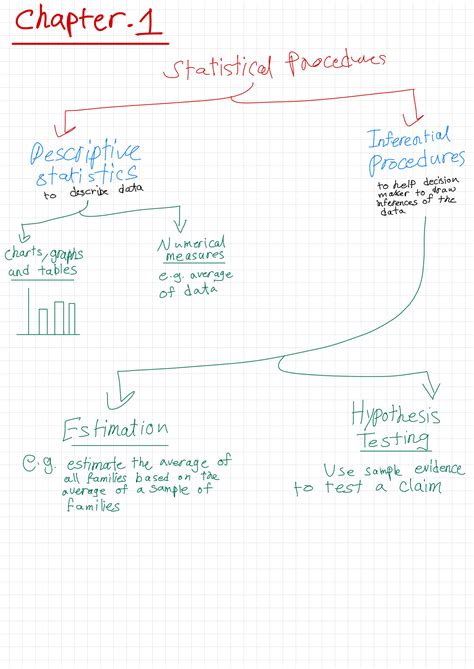 Chapter.1
Statistical Procedures
Descriptive
statistics
to describe data
Inferential
Procedures
to help decision
maker to draw
inferences of the
data
Charts, graphs
and tables
Numerical
measures
e.g. average
of data
Estimation
e.g. estimate the average of
all families based on the
average of a sample of
families
Hypothesis
Testing
Use sample evidence
to test a claim